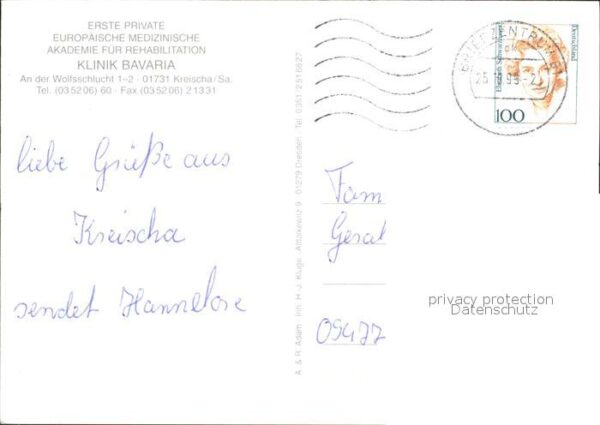 ERSTE PRIVATE
EUROPÄISCHE MEDIZINISCHE
AKADEMIE FÜR REHABILITATION
KLINIK BAVARIA
An der Wolfsschlucht 1-2 · 01731 Kreischa/Sa.
Tel. (035206) 60 · Fax (035206) 21331
liebe Grüße aus
Kreischa
sendet Hannelore
A. & R. Adam Inh. H.-J. Kluge Altfalkewitz 9 01279 Dresden Tel. 0351
BRIEFZENTRUM
Deutschland
100
Fam
Geral
09477
privacy protection
Datenschutz